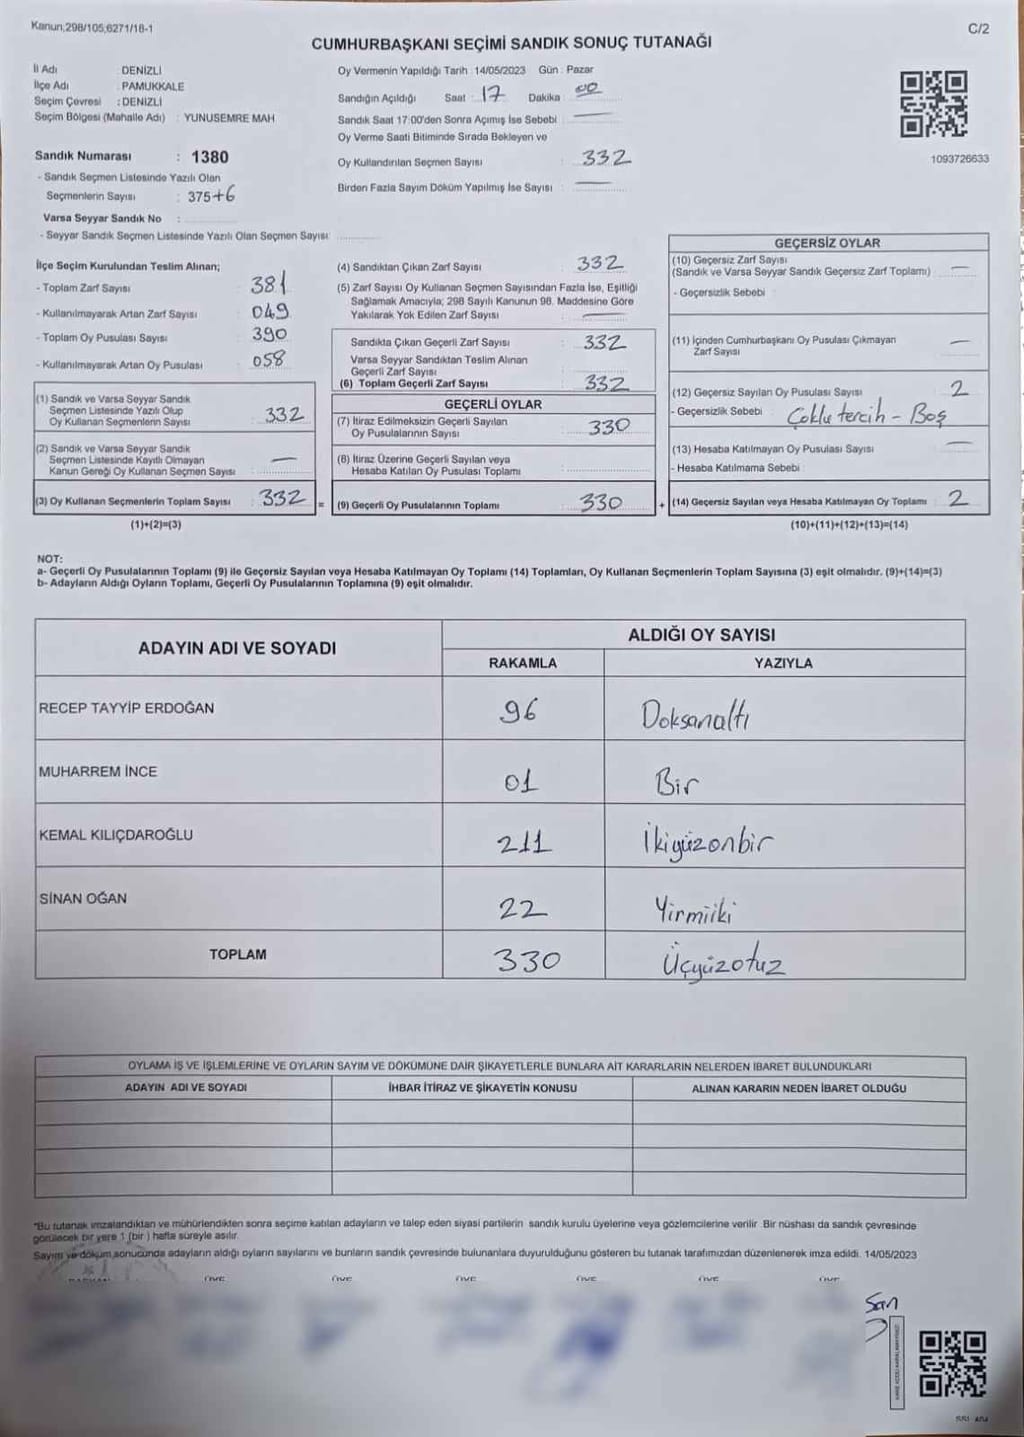 Kanun;298/105,6271/18-1
C/2
CUMHURBAŞKANI SEÇİMİ SANDIK SONUÇ TUTANAĞI
İl Adı : DENİZLİ
İlçe Adı : PAMUKKALE
Seçim Çevresi : DENİZLİ
Seçim Bölgesi (Mahalle Adı) : YUNUSEMRE MAH
Sandık Numarası : 1380
- Sandık Seçmen Listesinde Yazılı Olan
Seçmenlerin Sayısı : 375+6
Varsa Seyyar Sandık No :
- Seyyar Sandık Seçmen Listesinde Yazılı Olan Seçmen Sayısı:
Oy Vermenin Yapıldığı Tarih : 14/05/2023 Gün : Pazar
Sandığın Açıldığı Saat : 17 Dakika : 00
Sandık Saat 17:00'den Sonra Açımış İse Sebebi : —
Oy Verme Saati Bitiminde Sırada Bekleyen ve
Oy Kullandırılan Seçmen Sayısı : 332
Birden Fazla Sayım Döküm Yapılmış İse Sayısı : —
1093726633
İlçe Seçim Kurulundan Teslim Alınan;
- Toplam Zarf Sayısı : 381
- Kullanılmayarak Artan Zarf Sayısı : 049
- Toplam Oy Pusulası Sayısı : 390
- Kullanılmayarak Artan Oy Pusulası : 058
(1) Sandık ve Varsa Seyyar Sandık
Seçmen Listesinde Yazılı Olup
Oy Kullanan Seçmenlerin Sayısı : 332
(2) Sandık ve Varsa Seyyar Sandık
Seçmen Listesinde Kayıtlı Olmayan
Kanun Gereği Oy Kullanan Seçmen Sayısı : —
(3) Oy Kullanan Seçmenlerin Toplam Sayısı : 332
(1)+(2)=(3)
(4) Sandıktan Çıkan Zarf Sayısı : 332
(5) Zarf Sayısı Oy Kullanan Seçmen Sayısından Fazla İse, Eşitliği
Sağlamak Amacıyla; 298 Sayılı Kanunun 98. Maddesine Göre
Yakılarak Yok Edilen Zarf Sayısı : —
Sandıkta Çıkan Geçerli Zarf Sayısı : 332
Varsa Seyyar Sandıktan Teslim Alınan
Geçerli Zarf Sayısı :
(6) Toplam Geçerli Zarf Sayısı : 332
GEÇERLİ OYLAR
(7) İtiraz Edilmeksizin Geçerli Sayılan
Oy Pusulalarının Sayısı : 330
(8) İtiraz Üzerine Geçerli Sayılan veya
Hesaba Katılan Oy Pusulası Toplamı :
= (9) Geçerli Oy Pusulalarının Toplamı : 330
GEÇERSİZ OYLAR
(10) Geçersiz Zarf Sayısı
(Sandık ve Varsa Seyyar Sandık Geçersiz Zarf Toplamı) : —
- Geçersizlik Sebebi :
(11) İçinden Cumhurbaşkanı Oy Pusulası Çıkmayan
Zarf Sayısı : —
(12) Geçersiz Sayılan Oy Pusulası Sayısı : 2
- Geçersizlik Sebebi : Çoklu tercih - Boş
(13) Hesaba Katılmayan Oy Pusulası Sayısı : —
- Hesaba Katılmama Sebebi :
+ (14) Geçersiz Sayılan veya Hesaba Katılmayan Oy Toplamı : 2
(10)+(11)+(12)+(13)=(14)
NOT:
a- Geçerli Oy Pusulalarının Toplamı (9) ile Geçersiz Sayılan veya Hesaba Katılmayan Oy Toplamı (14) Toplamları, Oy Kullanan Seçmenlerin Toplam Sayısına (3) eşit olmalıdır. (9)+(14)=(3)
b- Adayların Aldığı Oyların Toplamı, Geçerli Oy Pusulalarının Toplamına (9) eşit olmalıdır.
ADAYIN ADI VE SOYADI
ALDIĞI OY SAYISI
RAKAMLA YAZIYLA
RECEP TAYYİP ERDOĞAN 96 Doksanaltı
MUHARREM İNCE 01 Bir
KEMAL KILIÇDAROĞLU 211 İkiyüzonbir
SİNAN OĞAN 22 Yirmiiki
TOPLAM 330 Üçyüzotuz
OYLAMA İŞ VE İŞLEMLERİNE VE OYLARIN SAYIM VE DÖKÜMÜNE DAİR ŞİKAYETLERLE BUNLARA AİT KARARLARIN NELERDEN İBARET BULUNDUKLARI
ADAYIN ADI VE SOYADI İHBAR İTİRAZ VE ŞİKAYETİN KONUSU ALINAN KARARIN NEDEN İBARET OLDUĞU
*Bu tutanak imzalandıktan ve mühürlendikten sonra seçime katılan adayların ve talep eden siyasi partilerin sandık kurulu üyelerine veya gözlemcilerine verilir. Bir nüshası da sandık çevresinde
görülecek bir yere 1 (bir ) hafta süreyle asılır.
Sayım ve döküm sonucunda adayların aldığı oyların sayılarını ve bunların sandık çevresinde bulunanlara duyurulduğunu gösteren bu tutanak tarafımızdan düzenlenerek imza edildi. 14/05/2023